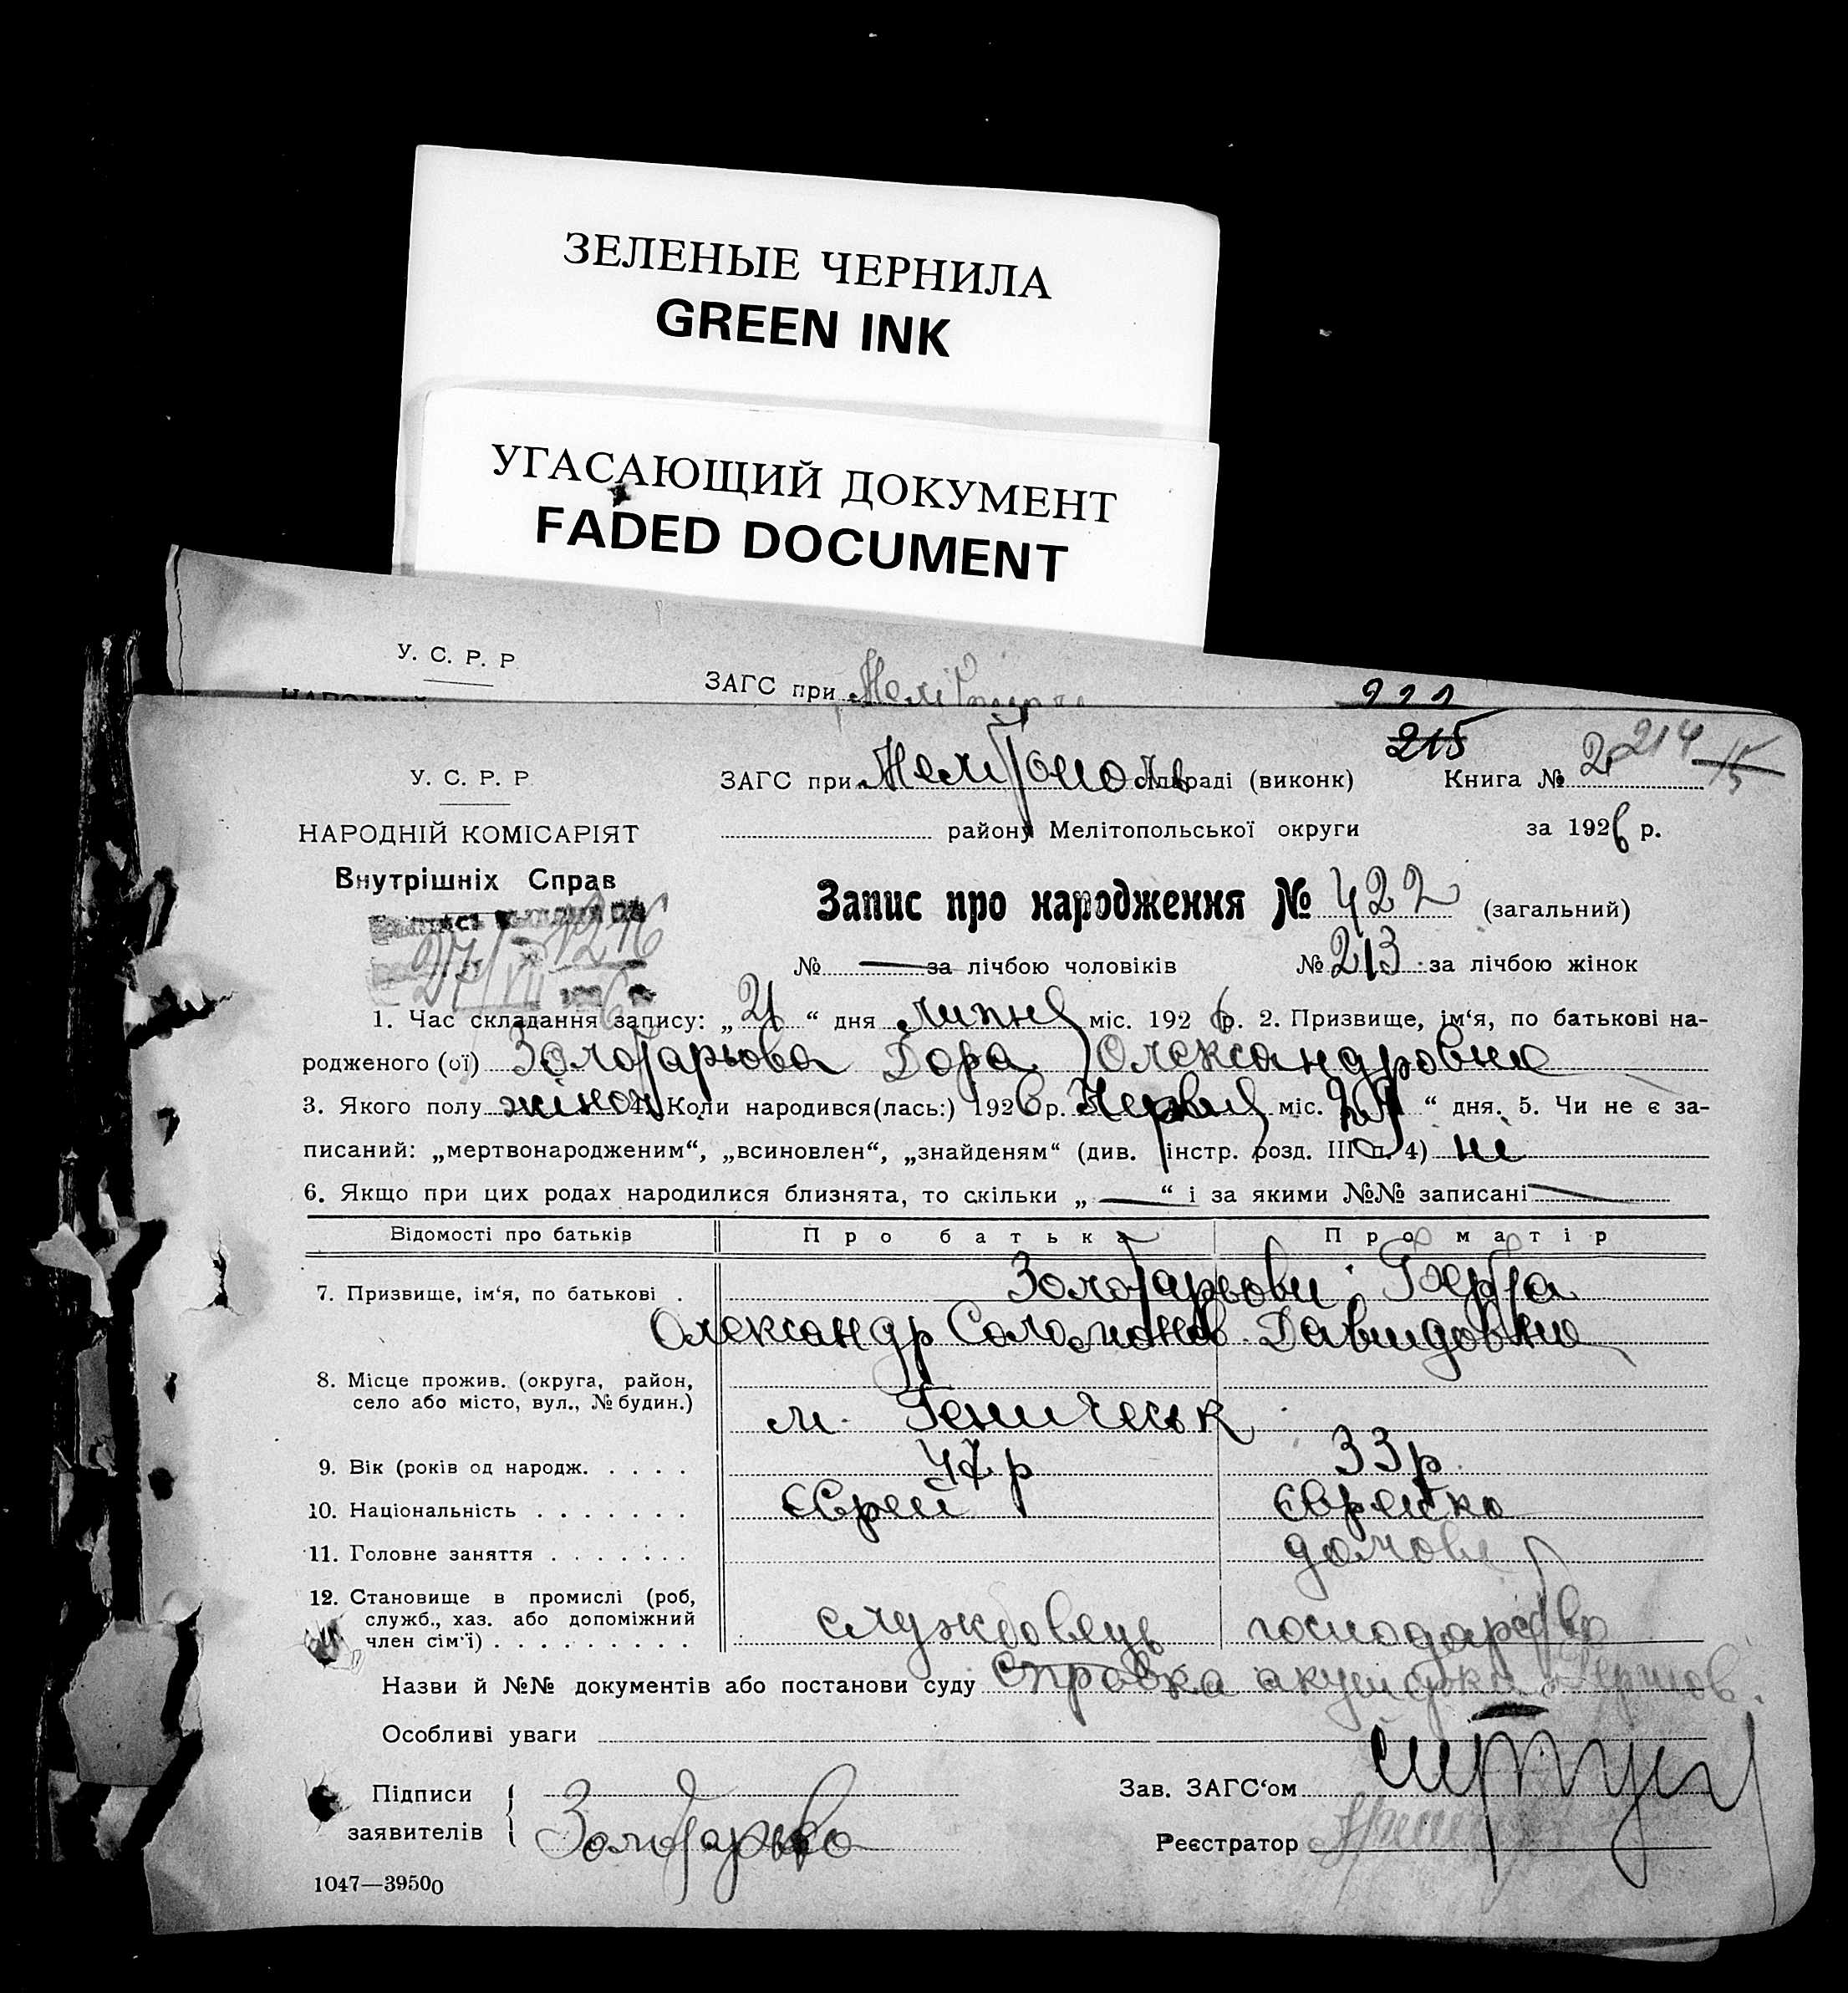 ЗЕЛЕНЫЕ ЧЕРНИЛА
GREEN INK
УГАСАЮЩИЙ ДОКУМЕНТ
FADED DOCUMENT
У. С. Р. Р
ЗАГС при
215 214
У. С. Р. Р.
ЗАГС при Мелітополь раді (виконк) Книга № 2
НАРОДНІЙ КОМІСАРІЯТ
району Мелітопольської округи за 1926 р.
Внутрішніх Справ
Запис про народження № 422 (загальний)
27/VII
№ — за лічбою чоловіків № 213 за лічбою жінок
1. Час складання запису: „ “ дня липня міс. 1926 р. 2. Призвище, ім‘я, по батькові на-
родженого (ої) Золотарьова Дора Олександровна
3. Якого полу жіноч 4. Коли народився(лась:) 1926 р. Червня міс. „ “ дня. 5. Чи не є за-
писаний: „мертвонародженим“, „всиновлен“, „знайденям“ (див. інстр. розд. III п. 4) ні
6. Якщо при цих родах народилися близнята, то скільки „ — “ і за якими №№ записані —
Відомості про батьків Про батька Про матір
7. Призвище, ім‘я, по батькові . Золотарьови: Берта
Олександр Соломонов Давидовна
8. Місце прожив. (округа, район,
село або місто, вул., № будин.) м. Геническ
9. Вік (років од народж. . . . . 47 р 33 р.
10. Національність . . . . . . . Єврей Єврейка
11. Головне заняття . . . . . . . домове
12. Становище в промислі (роб,
служб., хаз. або допоміжний
член сім‘ї) . . . . . . . . . службовець господарство
Назви й №№ документів або постанови суду справка акушерки
Особливі уваги
Підписи
заявителів Золотарьво
Зав. ЗАГС‘ом
Реєстратор
1047—39500